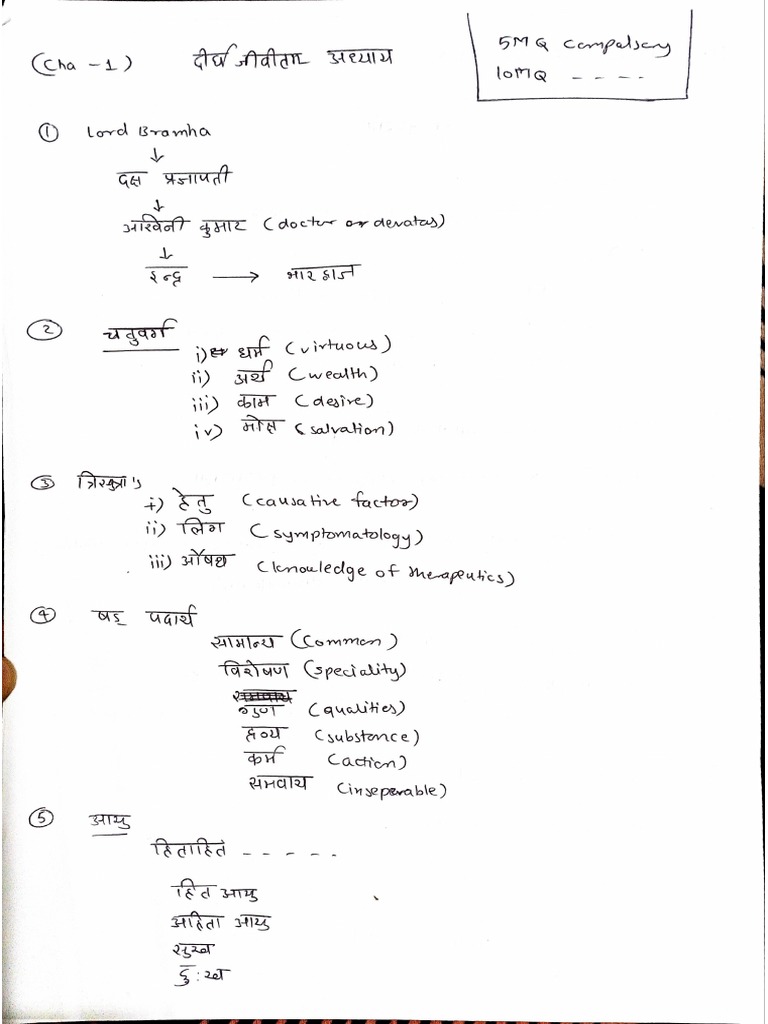 (Cha - 1) दीर्घ जीवीताः अध्याय
5MQ Compalsery
10MQ - - - -
① Lord Bramha
↓
दक्ष प्रजापती
↓
आश्विनी कुमार (doctor or devatas)
↓
इन्द्र → भारद्वाज
② चतुवर्ग
i) धर्म (virtuous)
ii) अर्थ (wealth)
iii) काम (desire)
iv) मोक्ष (salvation)
③ त्रिसुत्रा's
i) हेतु (causative factor)
ii) लिंग (symptomatology)
iii) औषध (knowledge of therapeutics)
④ षड् पदार्थ
सामान्य (Common)
विशेषण (speciality)
समवाय
गुण (qualities)
द्रव्य (substance)
कर्म (action)
समवाय (inseperable)
⑤ आयु
हिताहितं - - - - -
हित आयु
अहिता आयु
सुख
दु:ख